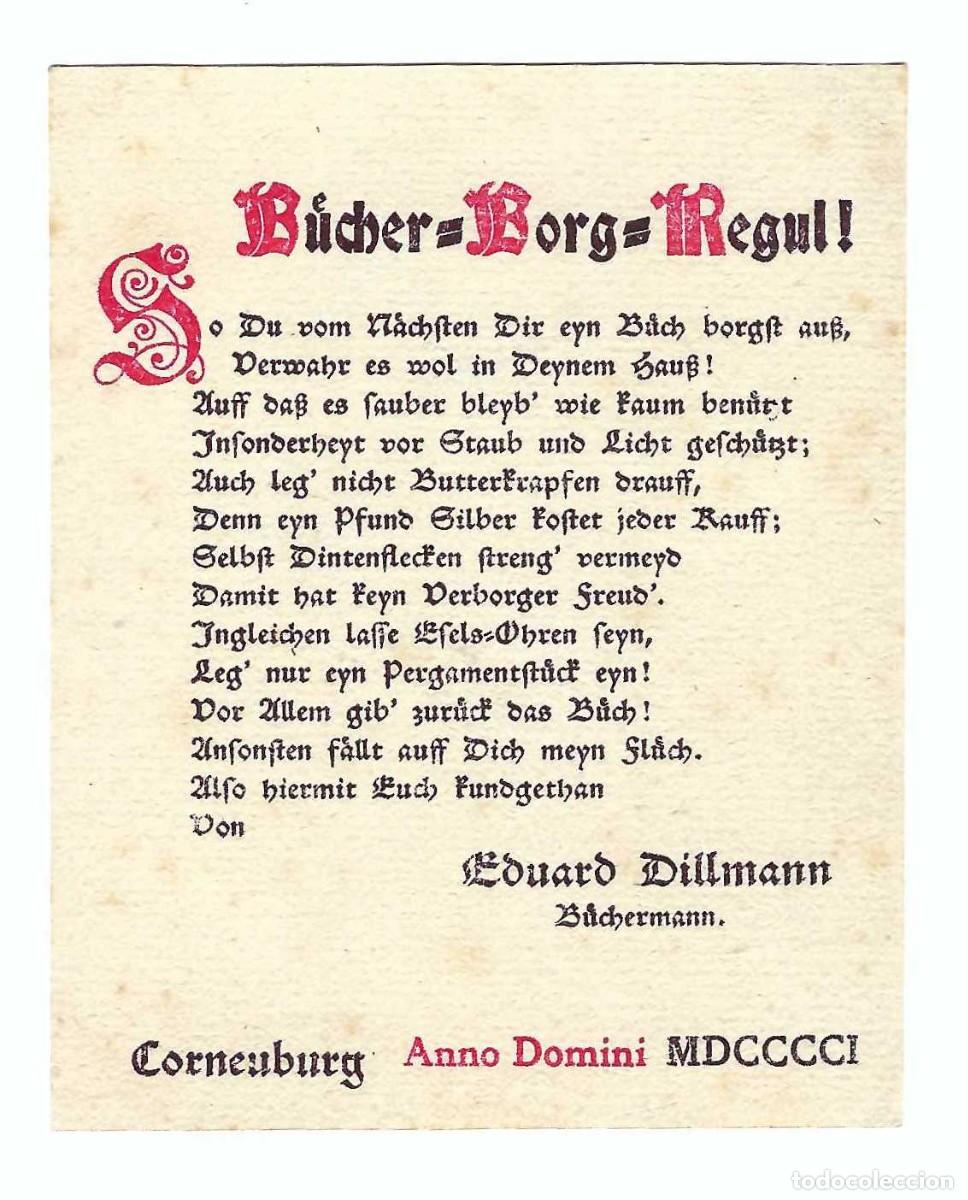 Bücher=Borg=Regul!
So Du vom Nächsten Dir eyn Bůch borgst auß,
Verwahr es wol in Deynem Hauß!
Auff daß es sauber bleyb' wie kaum benützt
Insonderheyt vor Staub und Licht geschützt;
Auch leg' nicht Butterkrapfen drauff,
Denn eyn Pfund Silber kostet jeder Kauff;
Selbst Dintenflecken streng' vermeyd
Damit hat keyn Verborger Freud'.
Ingleichen lasse Esels=Ohren seyn,
Leg' nur eyn Pergamentstück eyn!
Vor Allem gib' zurück das Bůch!
Ansonsten fällt auff Dich meyn Flůch.
Also hiermit Euch kundgethan
Von
Eduard Dillmann
Büchermann.
Corneuburg Anno Domini MDCCCCI
todocoleccion